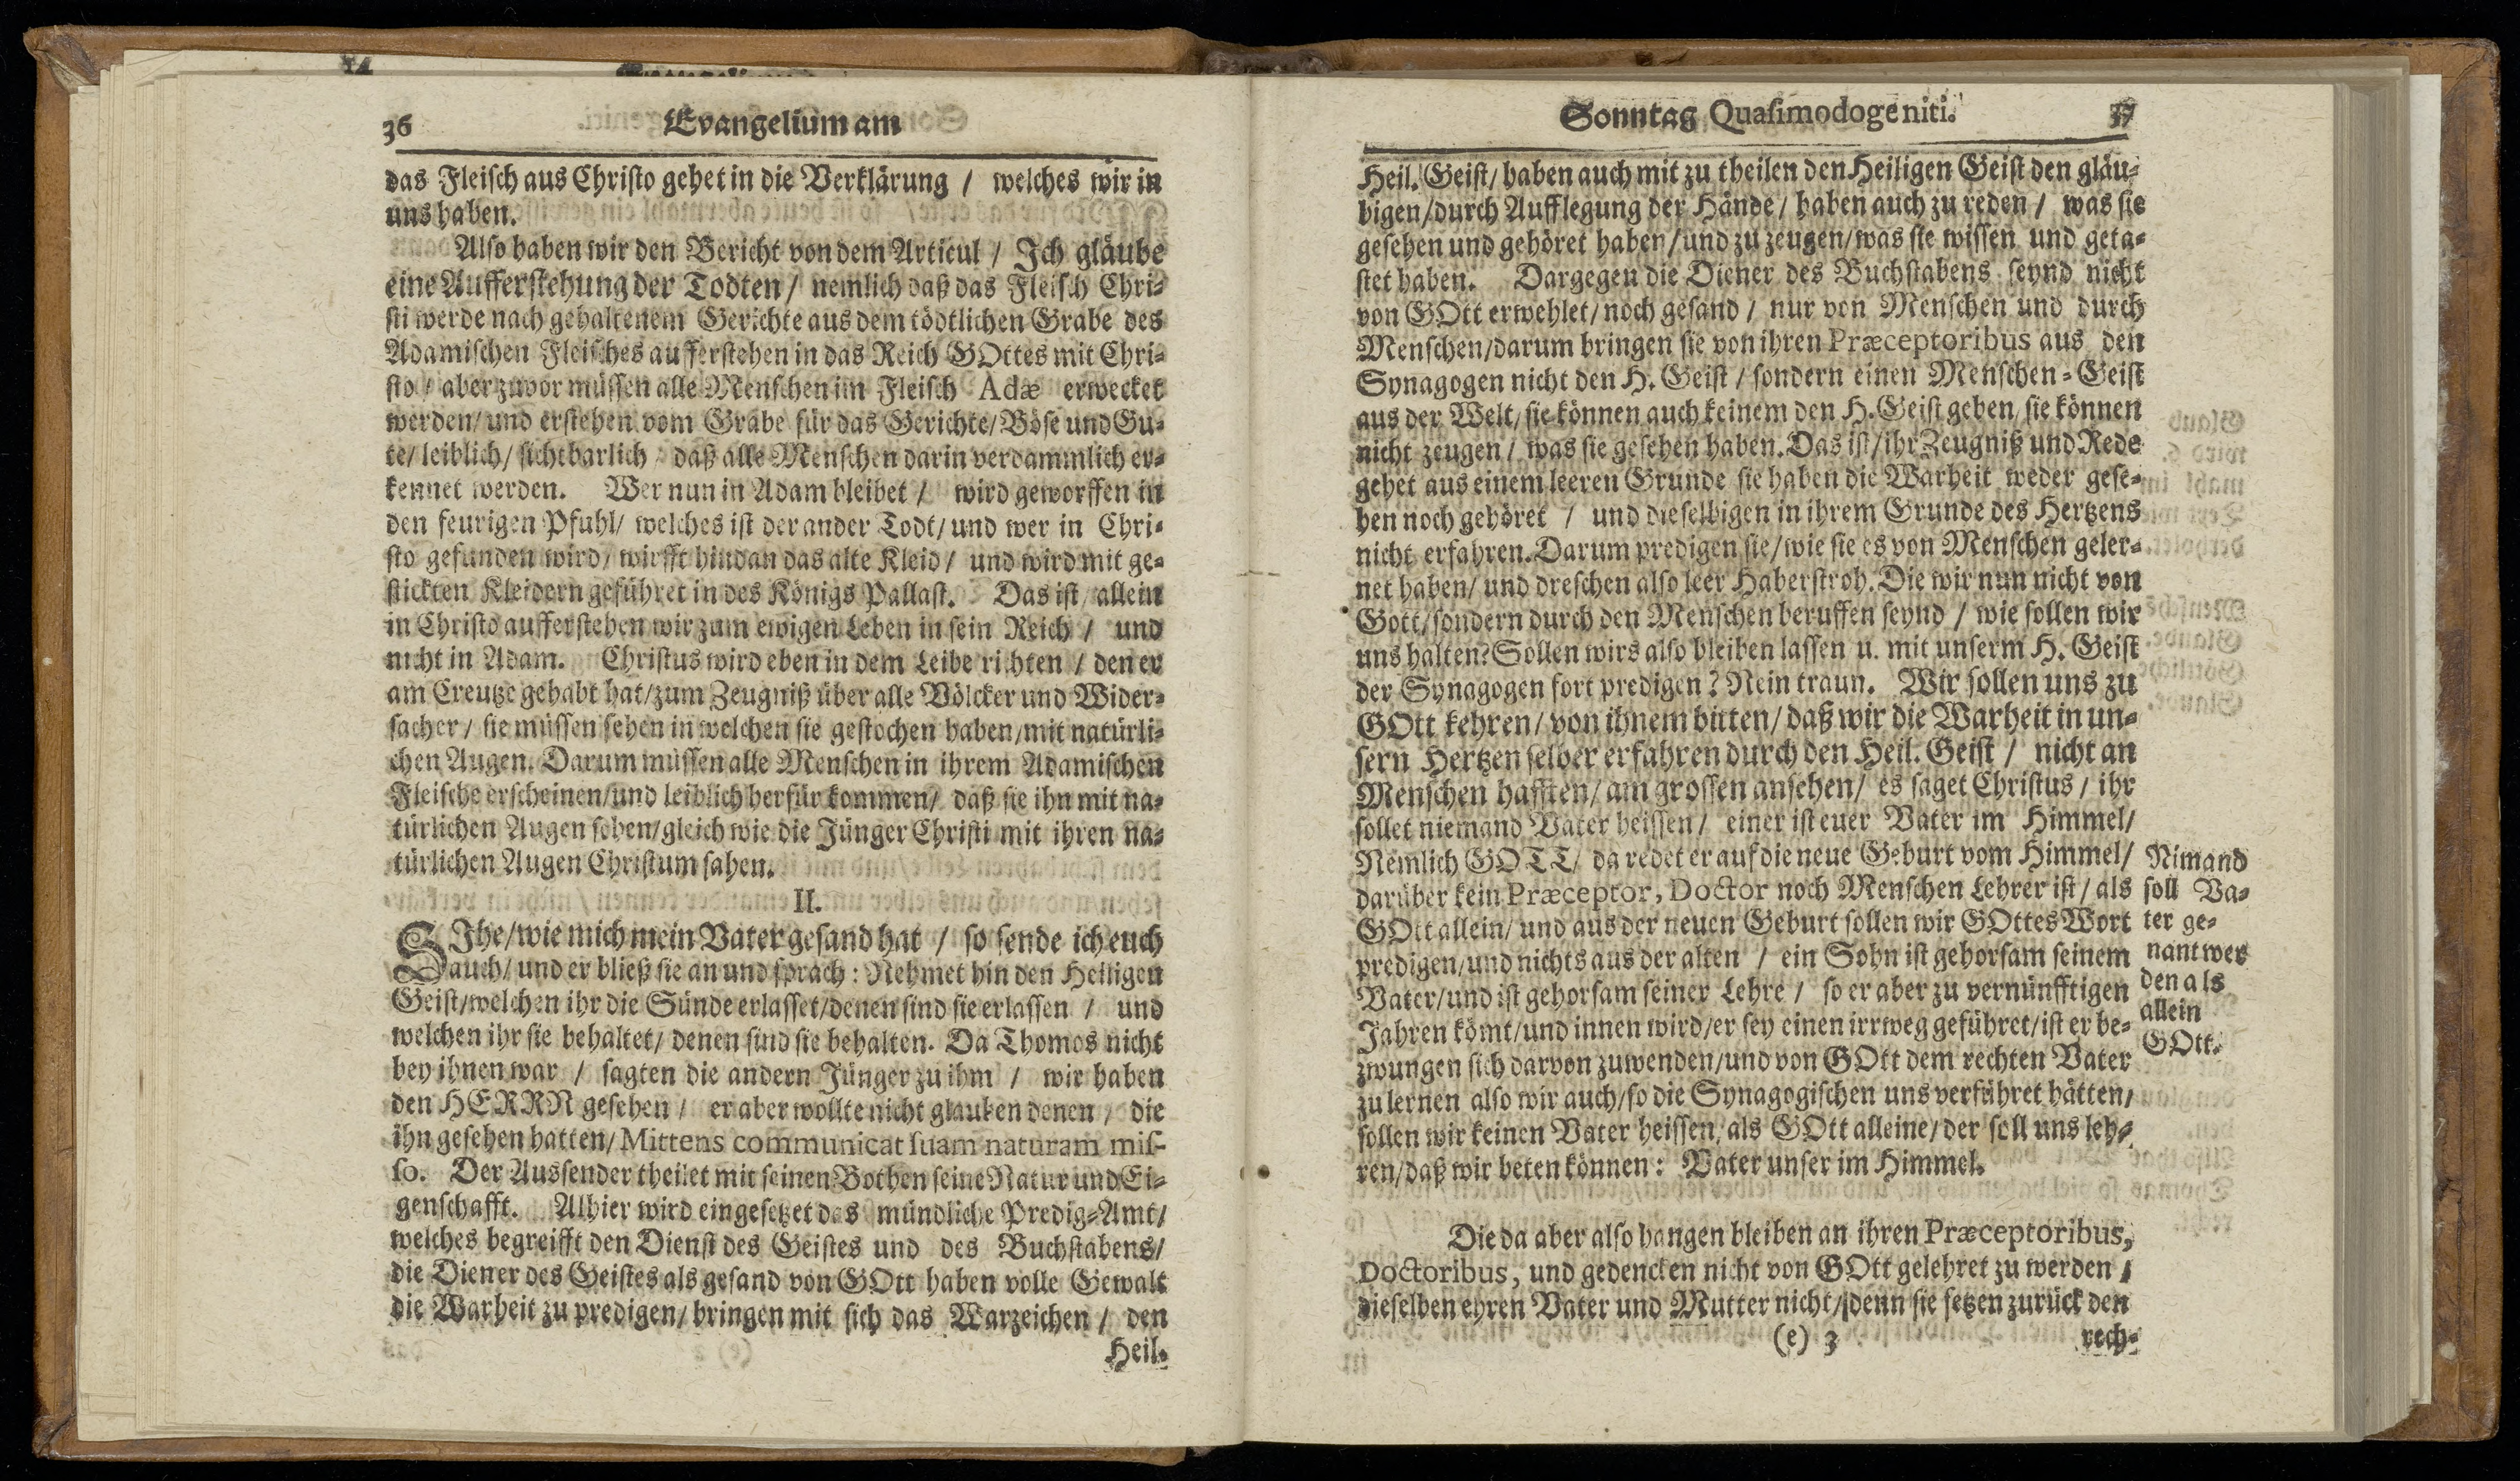 36 Evangelium am
das Fleisch aus Christo gehet in die Verklärung / welches wir in
uns haben.
Also haben wir den Bericht von dem Articul / Ich gläube
eine Aufferstehung der Todten / nemlich daß das Fleisch Chri-
sti werde nach gehaltenem Gerichte aus dem tödtlichen Grabe des
Adamischen Fleisches aufferstehen in das Reich GOttes mit Chri-
sto / aber zuvor müssen alle Menschen im Fleisch Adæ erwecket
werden / und erstehen vom Grabe für das Gerichte / Böse und Gu-
te / leiblich / sichtbarlich / daß alle Menschen darin verdammlich er-
kennet werden. Wer nun in Adam bleibet / wird geworffen in
den feurigen Pfuhl / welches ist der ander Todt / und wer in Chri-
sto gefunden wird / wirfft hindan das alte Kleid / und wird mit ge-
stickten Kleidern geführet in des Königs Pallast. Das ist / allein
in Christo aufferstehen wir zum ewigen Leben in sein Reich / und
nicht in Adam. Christus wird eben in dem Leibe richten / den er
am Creutze gehabt hat / zum Zeugniß über alle Völcker und Wider-
sacher / sie müssen sehen in welchen sie gestochen haben / mit natürli-
chen Augen. Darum müssen alle Menschen in ihrem Adamischen
Fleische erscheinen / und leiblich herfür kommen / daß sie ihn mit na-
türlichen Augen sehen / gleich wie die Jünger Christi mit ihren na-
türlichen Augen Christum sahen.
II.
SIhe / wie mich mein Vater gesand hat / so sende ich euch
auch / und er bließ sie an und sprach : Nehmet hin den Heiligen
Geist / welchen ihr die Sünde erlasset / denen sind sie erlassen / und
welchen ihr sie behaltet / denen sind sie behalten. Da Thomos nicht
bey ihnen war / sagten die andern Jünger zu ihm / wir haben
den HERRN gesehen / er aber wollte nicht glauben denen / die
ihn gesehen hatten / Mittens communicat suam naturam mis-
so. Der Aussender theilet mit seinen Bothen seine Natur und Ei-
genschafft. Alhier wird eingesetzet das mündliche Predig-Amt /
welches begreifft den Dienst des Geistes und des Buchstabens /
die Diener des Geistes als gesand von GOtt haben volle Gewalt
die Warheit zu predigen / bringen mit sich das Warzeichen / den
Heil.
Sonntag Quasimodogeniti. 37
Heil. Geist / haben auch mit zu theilen den Heiligen Geist den gläu-
bigen / durch Aufflegung der Hände / haben auch zu reden / was sie
gesehen und gehöret haben / und zu zeugen / was sie wissen und geta-
stet haben. Dargegen die Diener des Buchstabens seynd nicht
von GOtt erwehlet / noch gesand / nur von Menschen und durch
Menschen / darum bringen sie von ihren Præceptoribus aus den
Synagogen nicht den H. Geist / sondern einen Menschen-Geist
aus der Welt / sie können auch keinem den H. Geist geben / sie können
nicht zeugen / was sie gesehen haben. Das ist / ihr Zeugniß und Rede
gehet aus einem leeren Grunde sie haben die Warheit weder gese-
hen noch gehöret / und dieselbigen in ihrem Grunde des Hertzens
nicht erfahren. Darum predigen sie / wie sie es von Menschen geler-
net haben / und dreschen also leer Haberstroh. Die wir nun nicht von
Gott / sondern durch den Menschen beruffen seynd / wie sollen wir
uns halten? Sollen wirs also bleiben lassen u. mit unserm H. Geist
der Synagogen fort predigen? Nein traun. Wir sollen uns zu
GOtt kehren / von ihnem bitten / daß wir die Warheit in un-
sern Hertzen selber erfahren durch den Heil. Geist / nicht an
Menschen hafften / am grossen ansehen / es saget Christus / ihr
sollet niemand Vater heissen / einer ist euer Vater im Himmel /
Nemlich GOTT / da redet er auf die neue Geburt vom Himmel /
darüber kein Præceptor, Doctor noch Menschen Lehrer ist / als
GOtt allein / und aus der neuen Geburt sollen wir GOttes Wort
predigen / und nichts aus der alten / ein Sohn ist gehorsam seinem
Vater / und ist gehorsam seiner Lehre / so er aber zu vernünfftigen
Jahren kömt / und innen wird / er sey einen irrweg geführet / ist er be-
zwungen sich darvon zuwenden / und von GOtt dem rechten Vater
zu lernen also wir auch / so die Synagogischen uns verführet hätten /
sollen wir keinen Vater heissen / als GOtt alleine / der soll uns leh-
ren / daß wir beten können : Vater unser im Himmel.
Nimand
soll Va-
ter ge-
nant wer
den als
allein
GOtt.
Die da aber also hangen bleiben an ihren Præceptoribus,
Doctoribus, und gedencken nicht von GOtt gelehret zu werden /
dieselben ehren Vater und Mutter nicht / denn sie setzen zurück den
(e) 3 rech-